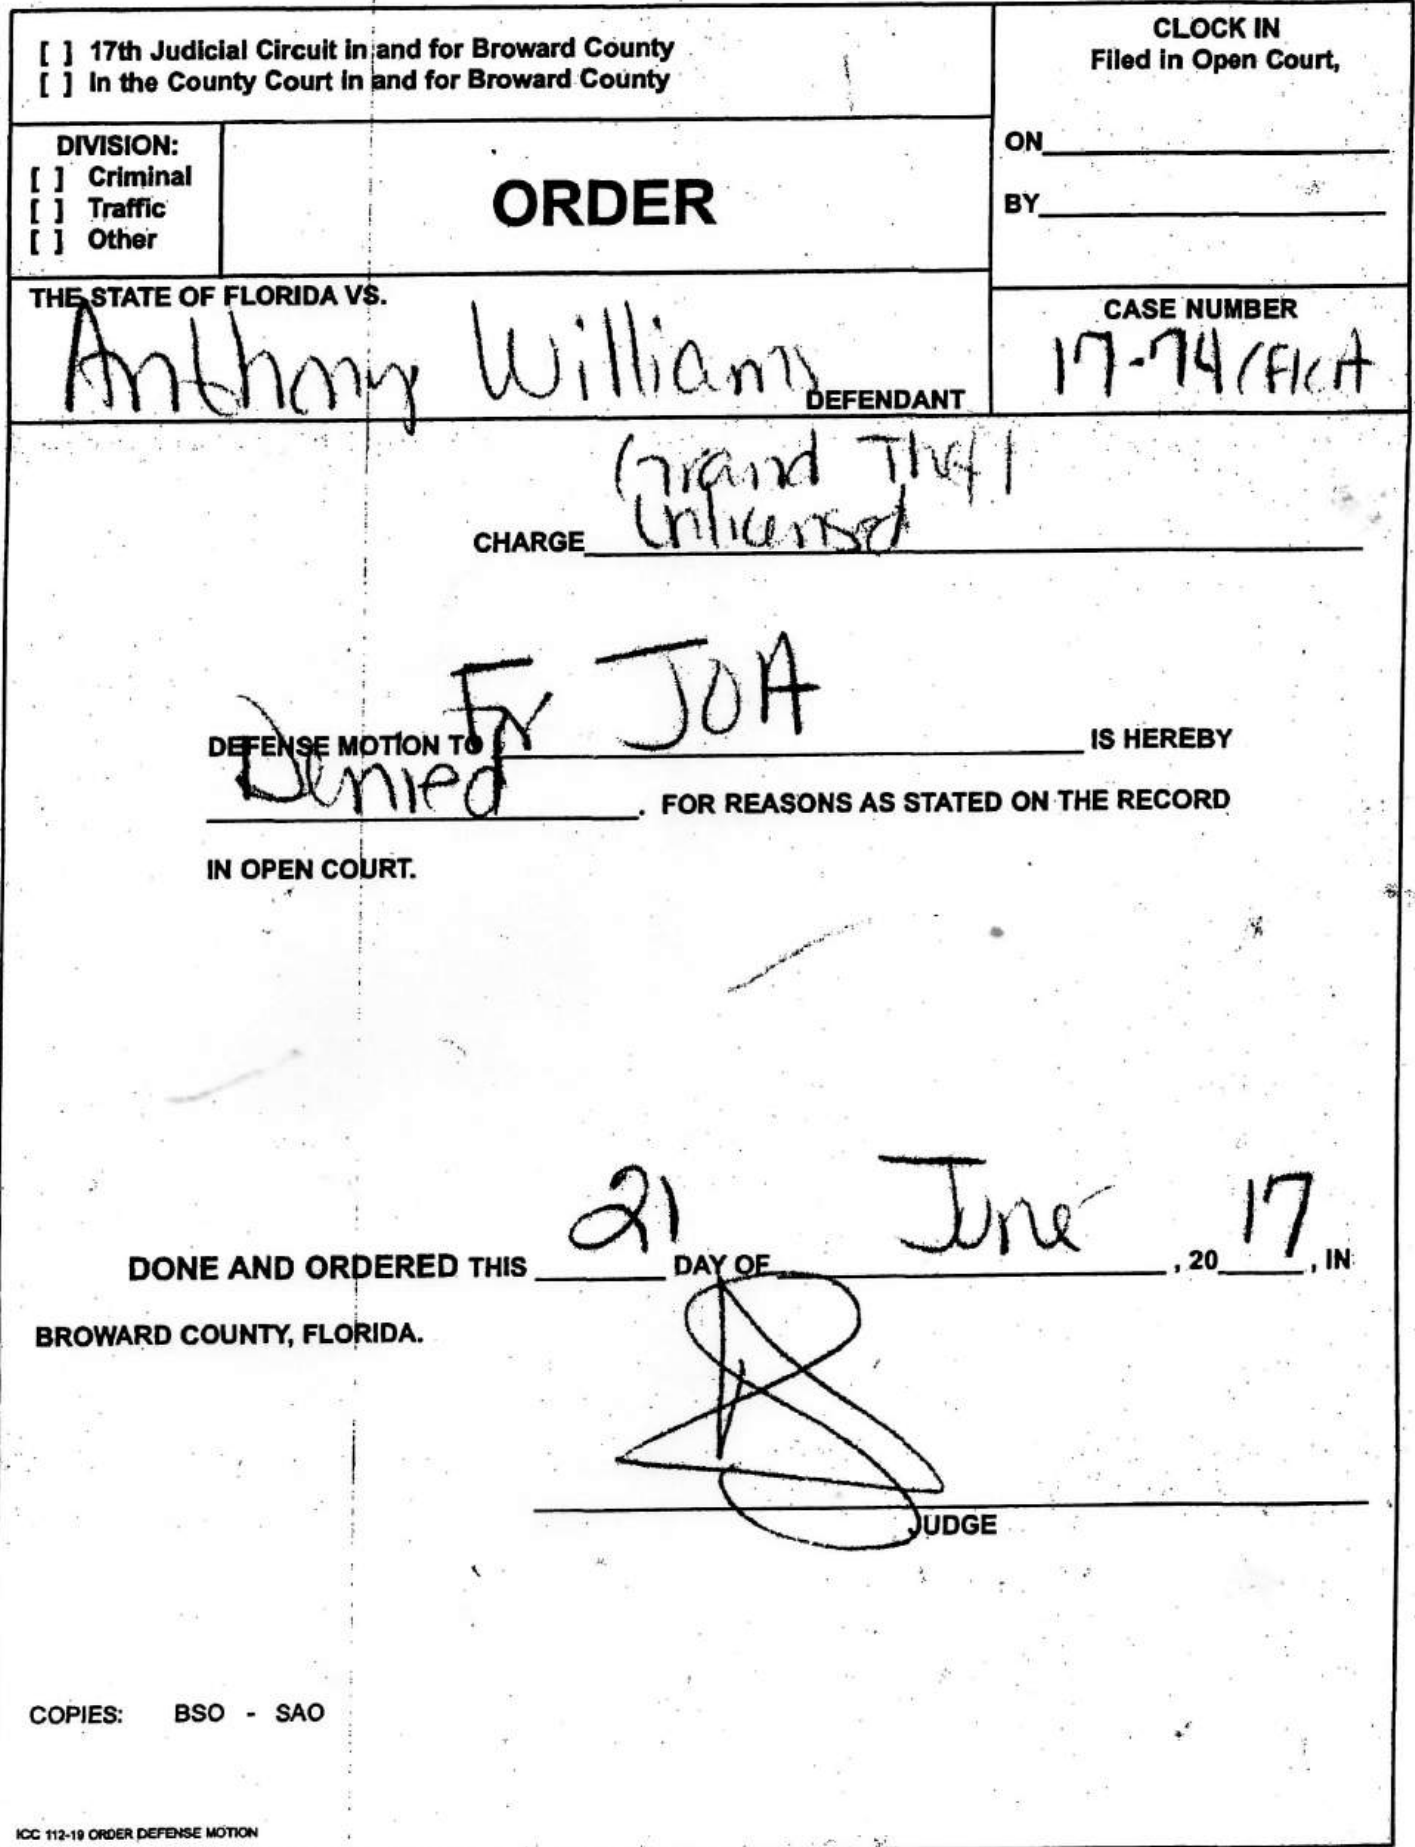 [ ] 17th Judicial Circuit in and for Broward County
[ ] In the County Court in and for Broward County
CLOCK IN
Filed in Open Court,
ON
BY
DIVISION:
[ ] Criminal
[ ] Traffic
[ ] Other
ORDER
THE STATE OF FLORIDA VS.
Anthony Williams
DEFENDANT
CASE NUMBER
17-74
Grand Theft
CHARGE Unlicensed
DEFENSE MOTION TO For JOA IS HEREBY
Denied. FOR REASONS AS STATED ON THE RECORD
IN OPEN COURT.
DONE AND ORDERED THIS 21 DAY OF June, 2017, IN
BROWARD COUNTY, FLORIDA.
JUDGE
COPIES: BSO - SAO
ICC 112-19 ORDER DEFENSE MOTION